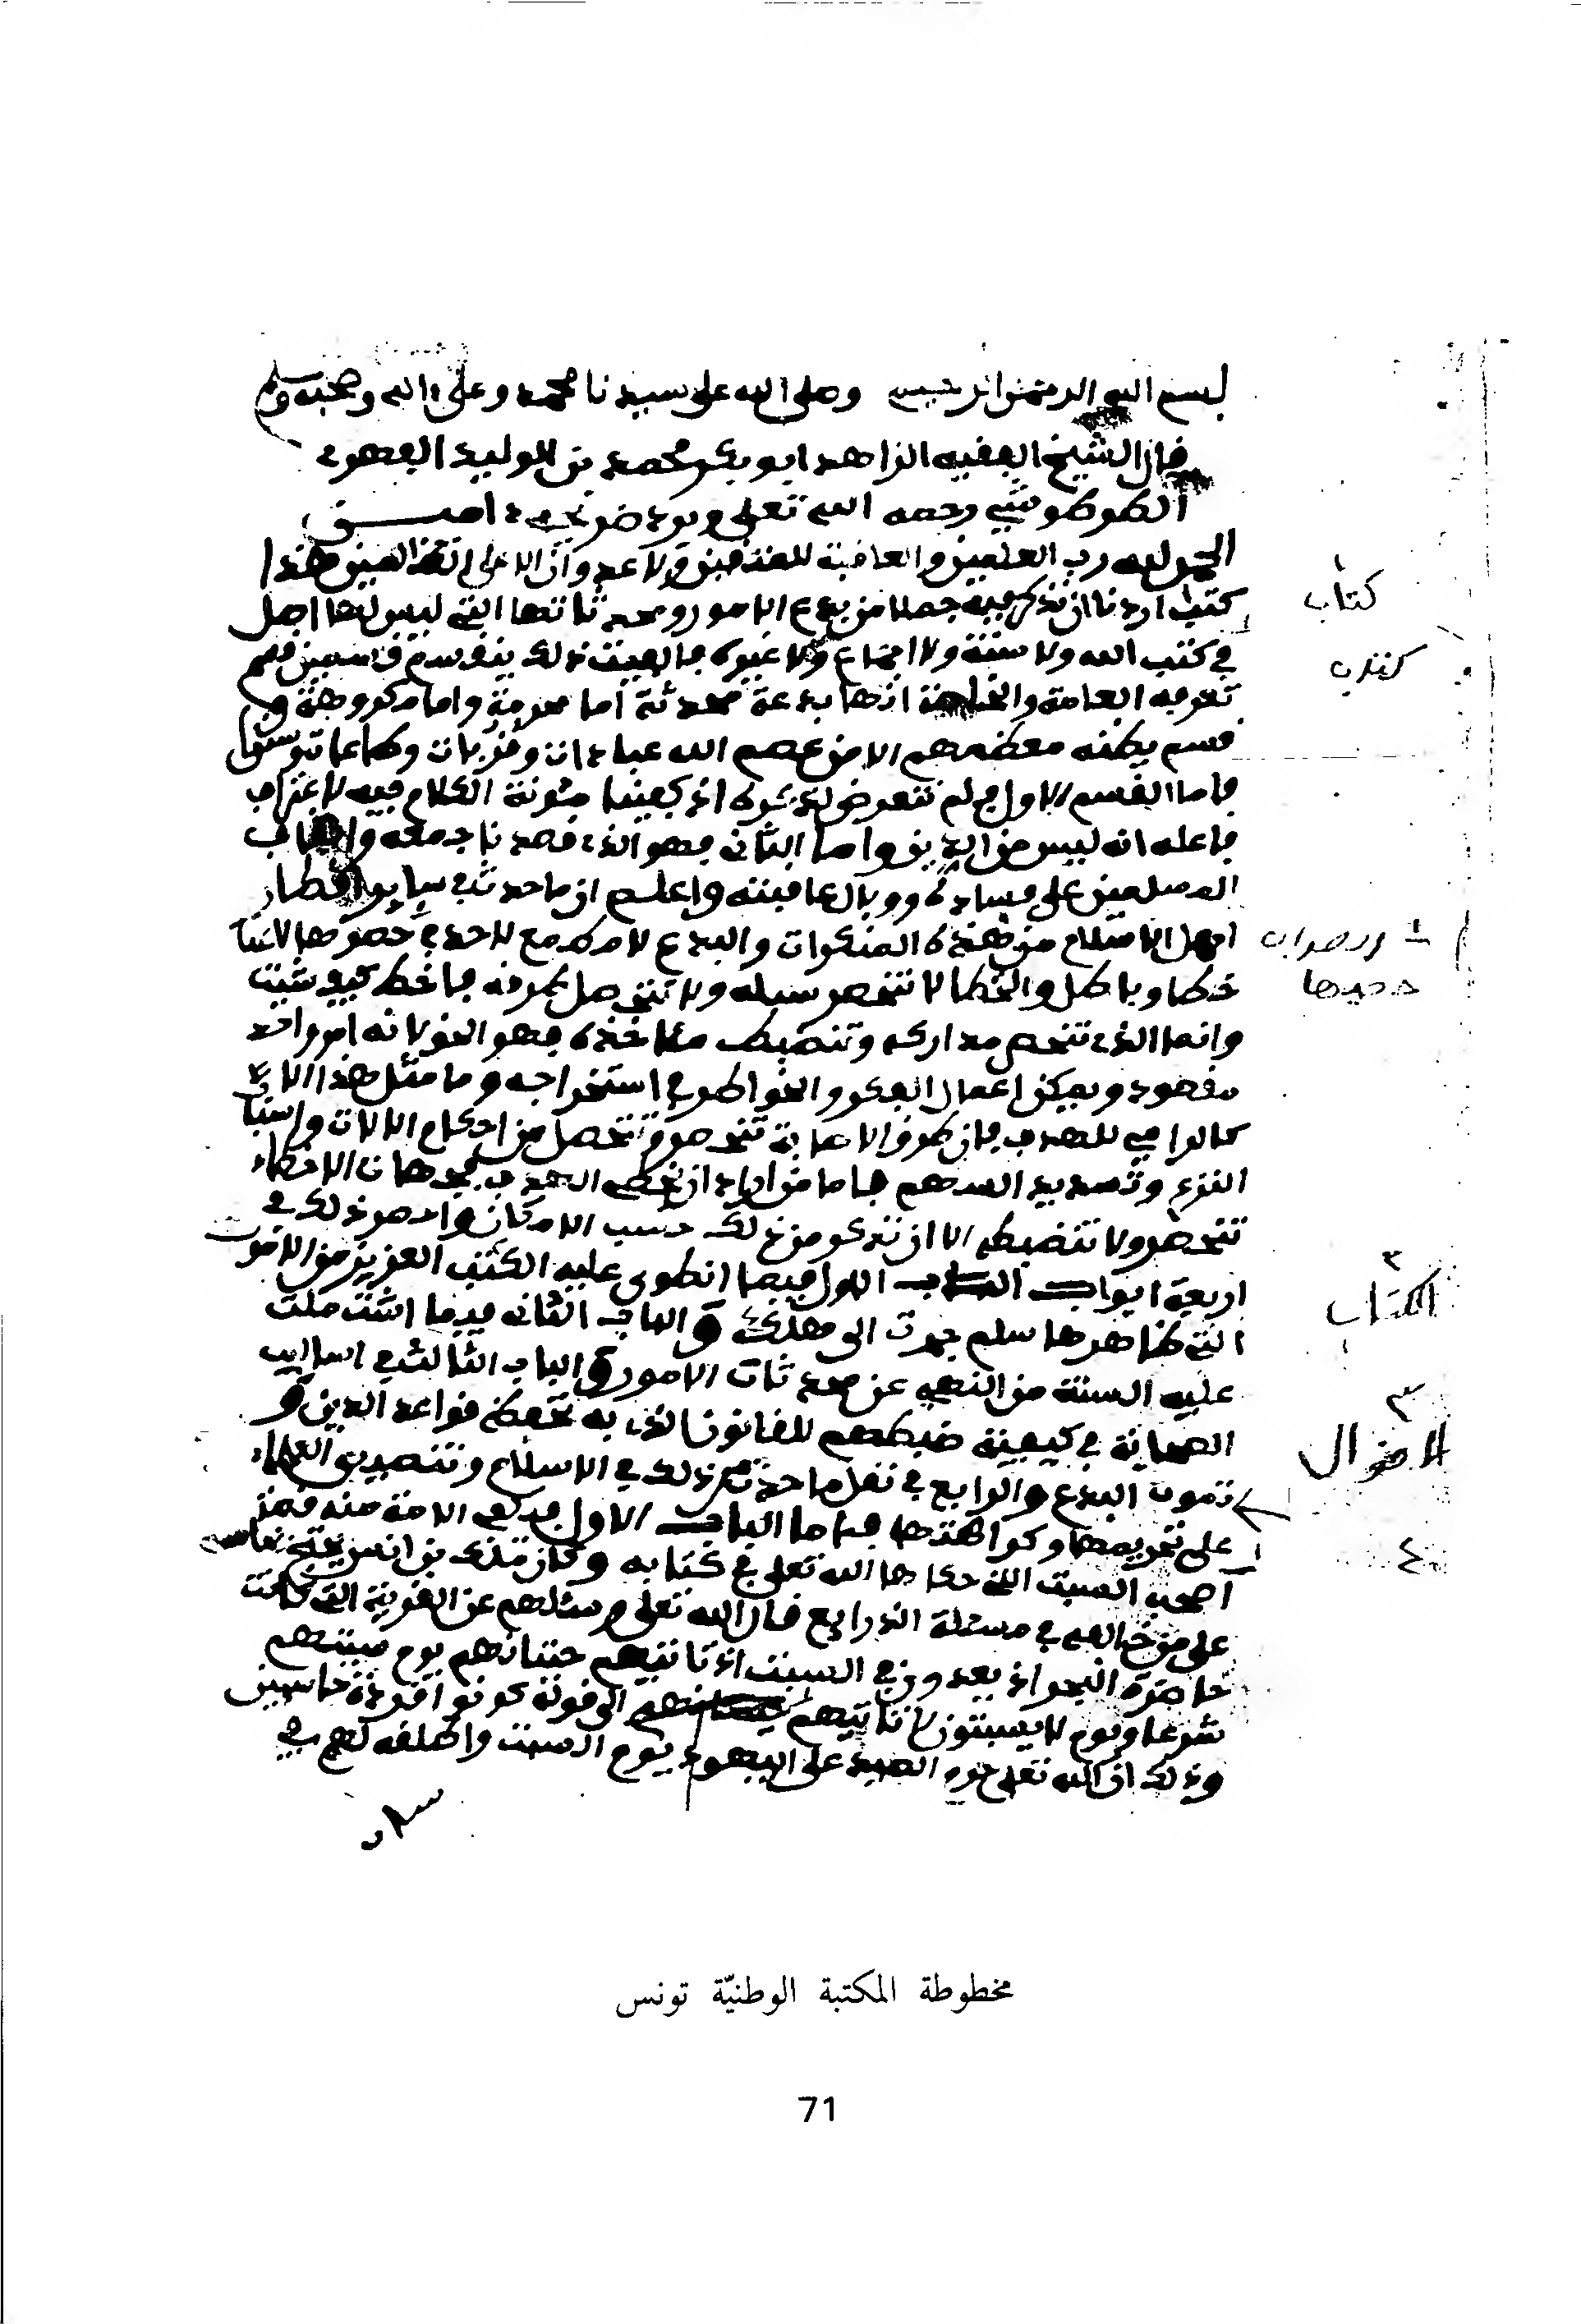 بسم الله الرحمن الرحيم وصلى الله على سيدنا محمد وعلى ءاله وصحبه وسلم
قال الشيخ الفقيه الزاهد ابو بكر محمد بن الوليد الفهري
الطرطوشي رحمه الله تعلى وبرد ضريحه ءامين
الحمد لله رب العلمين والعافبة للمتقين ولا عدوان الا على الظالمين هذا
كتب اردنا ان نذكر فيه جملا من بدع الامور ومحدثاتها التي ليس لها اصل
في كتب الله ولا سنة ولا اجماع ولا غيره فالفيت ذلك ينقسم قسمين قسم
تعرفه العامة والخاصة انها بدعة محدثة اما محرمة واما مكروهة و
قسم يظنه معظمهم الا من عصم الله عبادات وقربات وطاعات وسننا
فاما القسم الاول فلم نتعرض لذكره اذ كفينا مئونة الكلام فيه لاعتراف
فاعله انه ليس من الدين واما الثاني فهو الذي قصدنا جمعه وايقاف
المسلمين على فساده ووبال عاقبته واعلم ان ما حدث في ساير اقطار
اهل الاسلام من هذه المنكرات والبدع لا مطمع لاحد في حصرها لانها
خطا وباطل والخطا لا تنحصر سبله ولا تتحصل طرقه فاخط كيف شيت
وانما الذي تنحصر مداركه وتنضبط مئاخذه فهو الحق لانه امر واحد
مقصود ويمكن اعمال الفكر والخواطر في استخراجه وما مثل هذا الا
كالرامي للهدف فان طرق الاصابة تنحصر وتتحصل من احكام الالات واسباب
النزع وتسديد السهم فاما من اراد ان يخطى الهدف فجهات الاخطاء
لا تنحصر ولا تنضبط الا ان نذكر من ذلك حسب الامكان واحصر ذلك في
اربعة ابواب الباب الاول فيما انطوى عليه الكتب العزيز من الامور
التي ظاهرها سلم جرت الى هلك والباب الثاني فيما اشتملت
عليه السنة من النهي عن محدثات الامور والباب الثالث في اساليب
الصحابة في كيفية ضبطهم للقانون الذي به تحفظ قواعد الدين و
تموت البدع والرابع في نقل ما حدث من ذلك في الاسلام وتنصيص العلماء
على تحريمها وكراهتها فاما الباب الاول
اصحب السبت التي حكاها الله تعلى في كتابه وكان ملك بن انس يحتج بها
على من خالفه في مسئلة الذرايع قال الله تعلى وسئلهم عن القرية التي كانت
حاضرة البحر اذ يعدون في السبت اذ تاتيهم حيتانهم يوم سبتهم
شرعا ويوم لا يسبتون لا تاتيهم الى قوله كونوا قردة خاسين
وذلك ان الله تعلى حرم الصيد على اليهود يوم السبت واطلقه لهم في
كتاب
كتاب
الكتاب
الاقوال
مخطوطة المكتبة الوطنيّة تونس
71